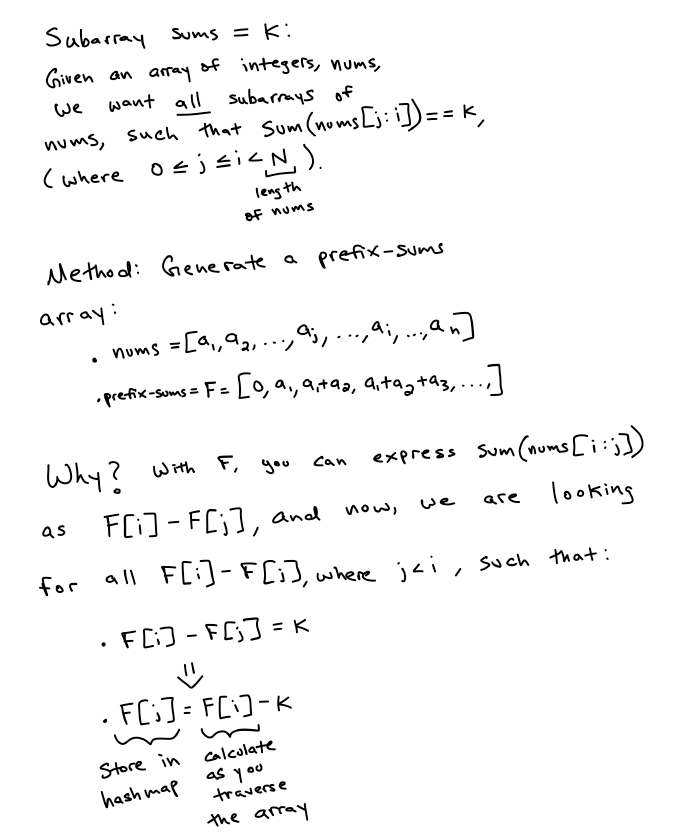 Subarray sums = K:
Given an array of integers, nums,
we want all subarrays of
nums, such that Sum(nums[j:i])==K,
(where 0 ≤ j ≤ i < N ).
length
of nums
Method: Generate a prefix-sums
array:
. nums = [a₁, a₂, ..., aⱼ, ..., aᵢ, ..., aₙ]
. prefix-sums = F = [0, a₁, a₁+a₂, a₁+a₂+a₃, ...,]
Why? With F, you can express sum(nums[i:j])
as F[i] - F[j], and now, we are looking
for all F[i] - F[j], where j<i , such that:
. F[i] - F[j] = K
⇓
. F[j] = F[i] - K
Store in calculate
hashmap as you
traverse
the array